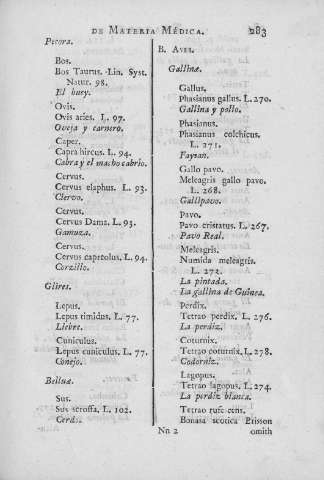 DE MATERIA MÉDICA. 283
Pecora.
Bos.
Bos Taurus. Lin. Syst.
Natur. 98.
El buey.
Ovis.
Ovis aries. L. 97.
Oveja y carnero.
Caper.
Capra hircus. L. 94.
Cabra y el macho cabrío.
Cervus.
Cervus elaphus. L. 93.
Ciervo.
Cervus.
Cervus Dama. L. 93.
Gamuza.
Cervus.
Cervus capreolus. L. 94.
Corzillo.
Glires.
Lepus.
Lepus timidus. L. 77.
Liebre.
Cuniculus.
Lepus cuniculus. L. 77.
Conejo.
Belluæ.
Sus.
Sus scroffa. L. 102.
Cerdo.
B. AVES.
Gallinæ.
Gallus.
Phasianus gallus. L. 270.
Gallina y pollo.
Phasianus.
Phasianus colchicus.
L. 271.
Faysan.
Gallo pavo.
Meleagris gallo pavo.
L. 268.
Gallipavo.
Pavo.
Pavo cristatus. L. 267.
Pavo Real.
Meleagris.
Numida meleagris.
L. 272.
La pintada.
La gallina de Guinea.
Perdix.
Tetrao perdix. L. 276.
La perdiz.
Coturnix.
Tetrao coturnix. L. 278.
Codorniz.
Lagopus.
Tetrao lagopus. L. 274.
La perdiz blanca.
Tetrao rufescens.
Bonasa scotica Brisson
Nn 2 ornith